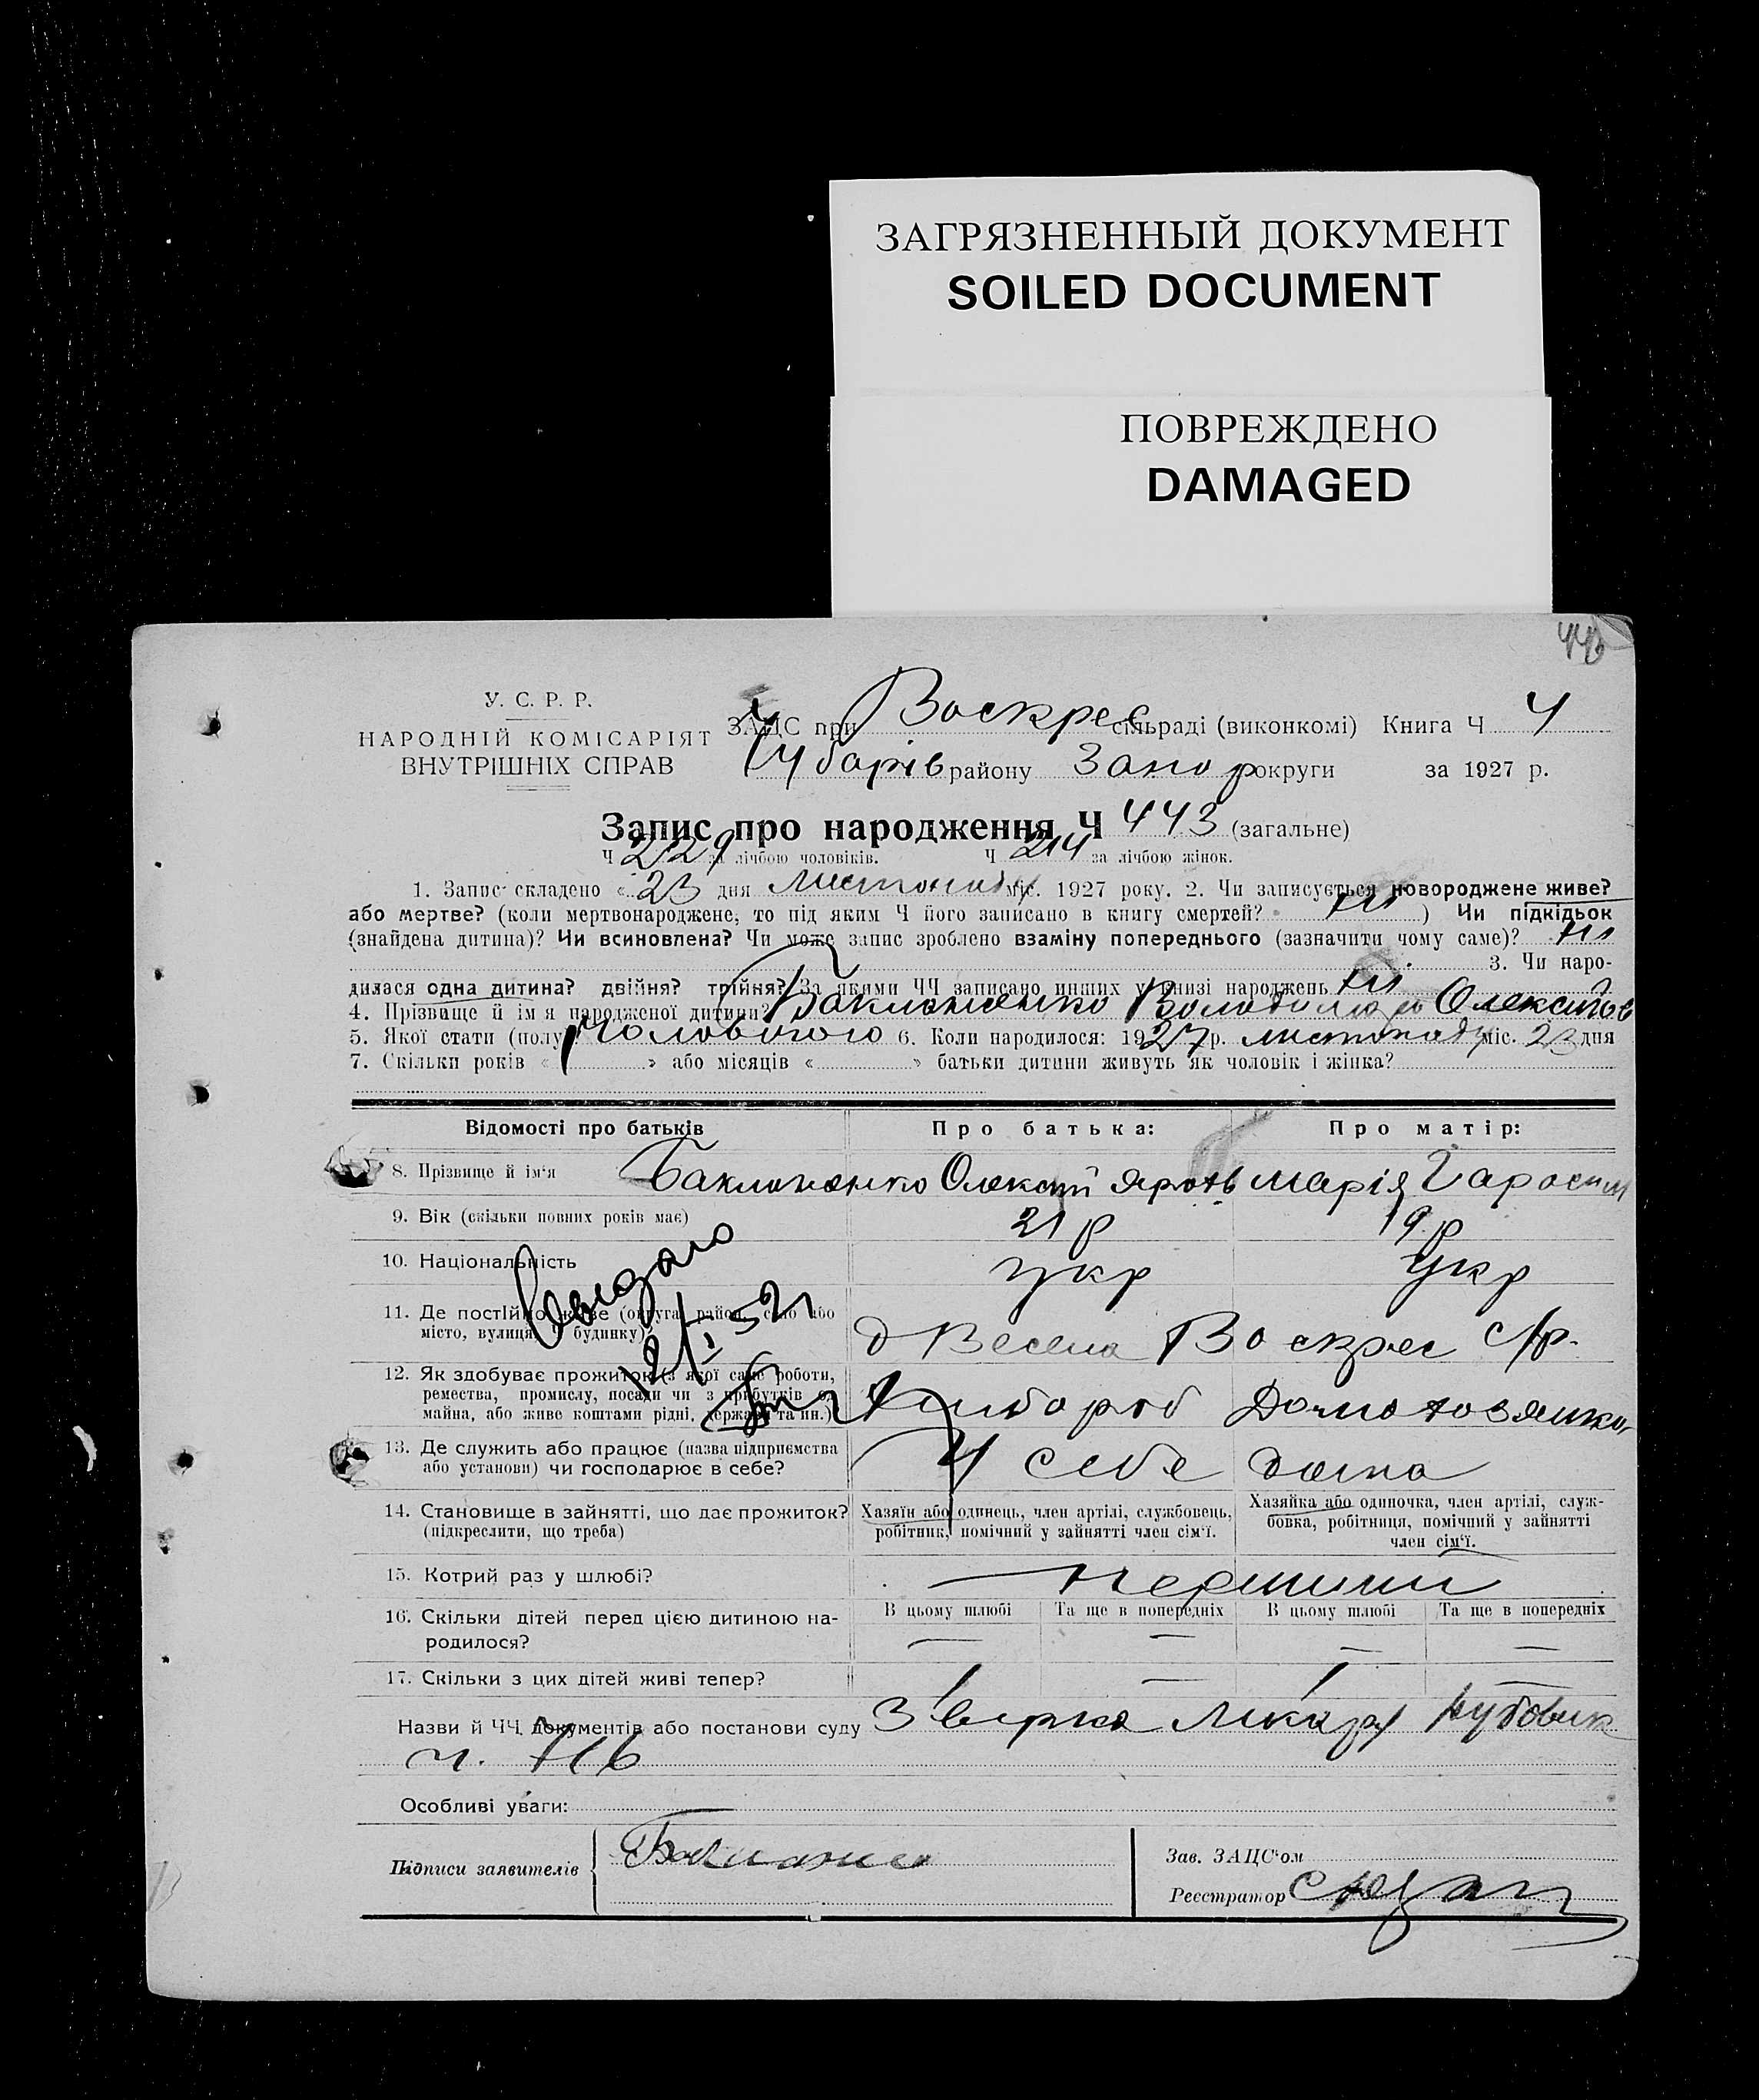 ЗАГРЯЗНЕННЫЙ ДОКУМЕНТ
SOILED DOCUMENT
ПОВРЕЖДЕНО
DAMAGED
У. С. Р. Р.
НАРОДНІЙ КОМІСАРІЯТ
ВНУТРІШНІХ СПРАВ
ЗАЦС при Воскрес сільраді (виконкомі) Книга Ч 4
Чубарів району Запор округи за 1927 р.
Запис про народження Ч 443 (загальне)
Ч 229 за лічбою чоловіків. Ч 214 за лічбою жінок.
1. Запис складено « 23 дня листопаду міс. 1927 року. 2. Чи записується новороджене живе?
або мертве? (коли мертвонароджене, то під яким Ч його записано в книгу смертей? ні ) Чи підкідьок
(знайдена дитина)? Чи всиновлена? Чи може запис зроблено взаміну попереднього (зазначити чому саме)? ні
3. Чи наро-
дилася одна дитина? двійня? трійня? За якими ЧЧ записано инших у книзі народжень ні
4. Прізвище й ім'я народженої дитини? Баклоненко Володимир Олексійов
5. Якої стати (полу) Чоловічого 6. Коли народилося: 1927 р. листопаду міс. 23 дня
7. Скільки років « » або місяців « » батьки дитини живуть як чоловік і жінка?
Відомості про батьків Про батька: Про матір:
8. Прізвище й ім'я Баклоненко Олексій Марія Гарасим
9. Вік (скільки повних років має) 21 р 19 р
10. Національність укр Укр
11. Де постійно живе (округа, район, село або
місто, вулиця, Ч будинку) д Весела Воскрес с/р.
12. Як здобуває прожиток (з якої саме роботи,
ремества, промислу, посади чи з прибутків од
майна, або живе коштами рідні, держави та ин.) Хлібороб Домохозяйка
13. Де служить або працює (назва підприємства
або установи) чи господарює в себе? У себе дома
14. Становище в зайнятті, що дає прожиток?
(підкреслити, що треба)
Хазяїн або одинець, член артілі, службовець,
робітник, помічний у зайнятті член сім'ї.
Хазяйка або одиночка, член артілі, служ-
бовка, робітниця, помічний у зайнятті
член сім'ї.
15. Котрий раз у шлюбі? — перший
16. Скільки дітей перед цією дитиною на-
родилося?
В цьому шлюбі Та ще в попередніх В цьому шлюбі Та ще в попередніх
— — — —
17. Скільки з цих дітей живі тепер? — —
Назви й ЧЧ документів або постанови суду
ч.
Особливі уваги:
Підписи заявителів
Зав. ЗАЦС'ом
Реєстратор